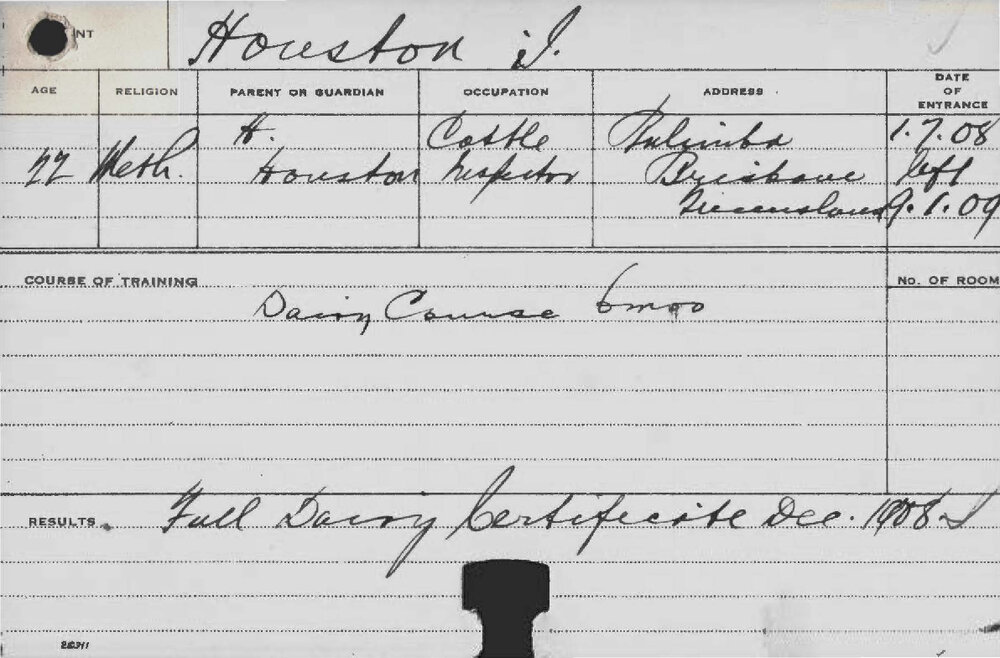 NT
Houston J.
AGE RELIGION PARENT OR GUARDIAN OCCUPATION ADDRESS DATE OF ENTRANCE
H. Cattle Bulimba 1.7.08
22 Meth. Houston Inspector Brisbane left
Queensland 9.1.09
COURSE OF TRAINING No. OF ROOM
Dairy Course 6mos
RESULTS. Full Dairy Certificate Dec. 1908.